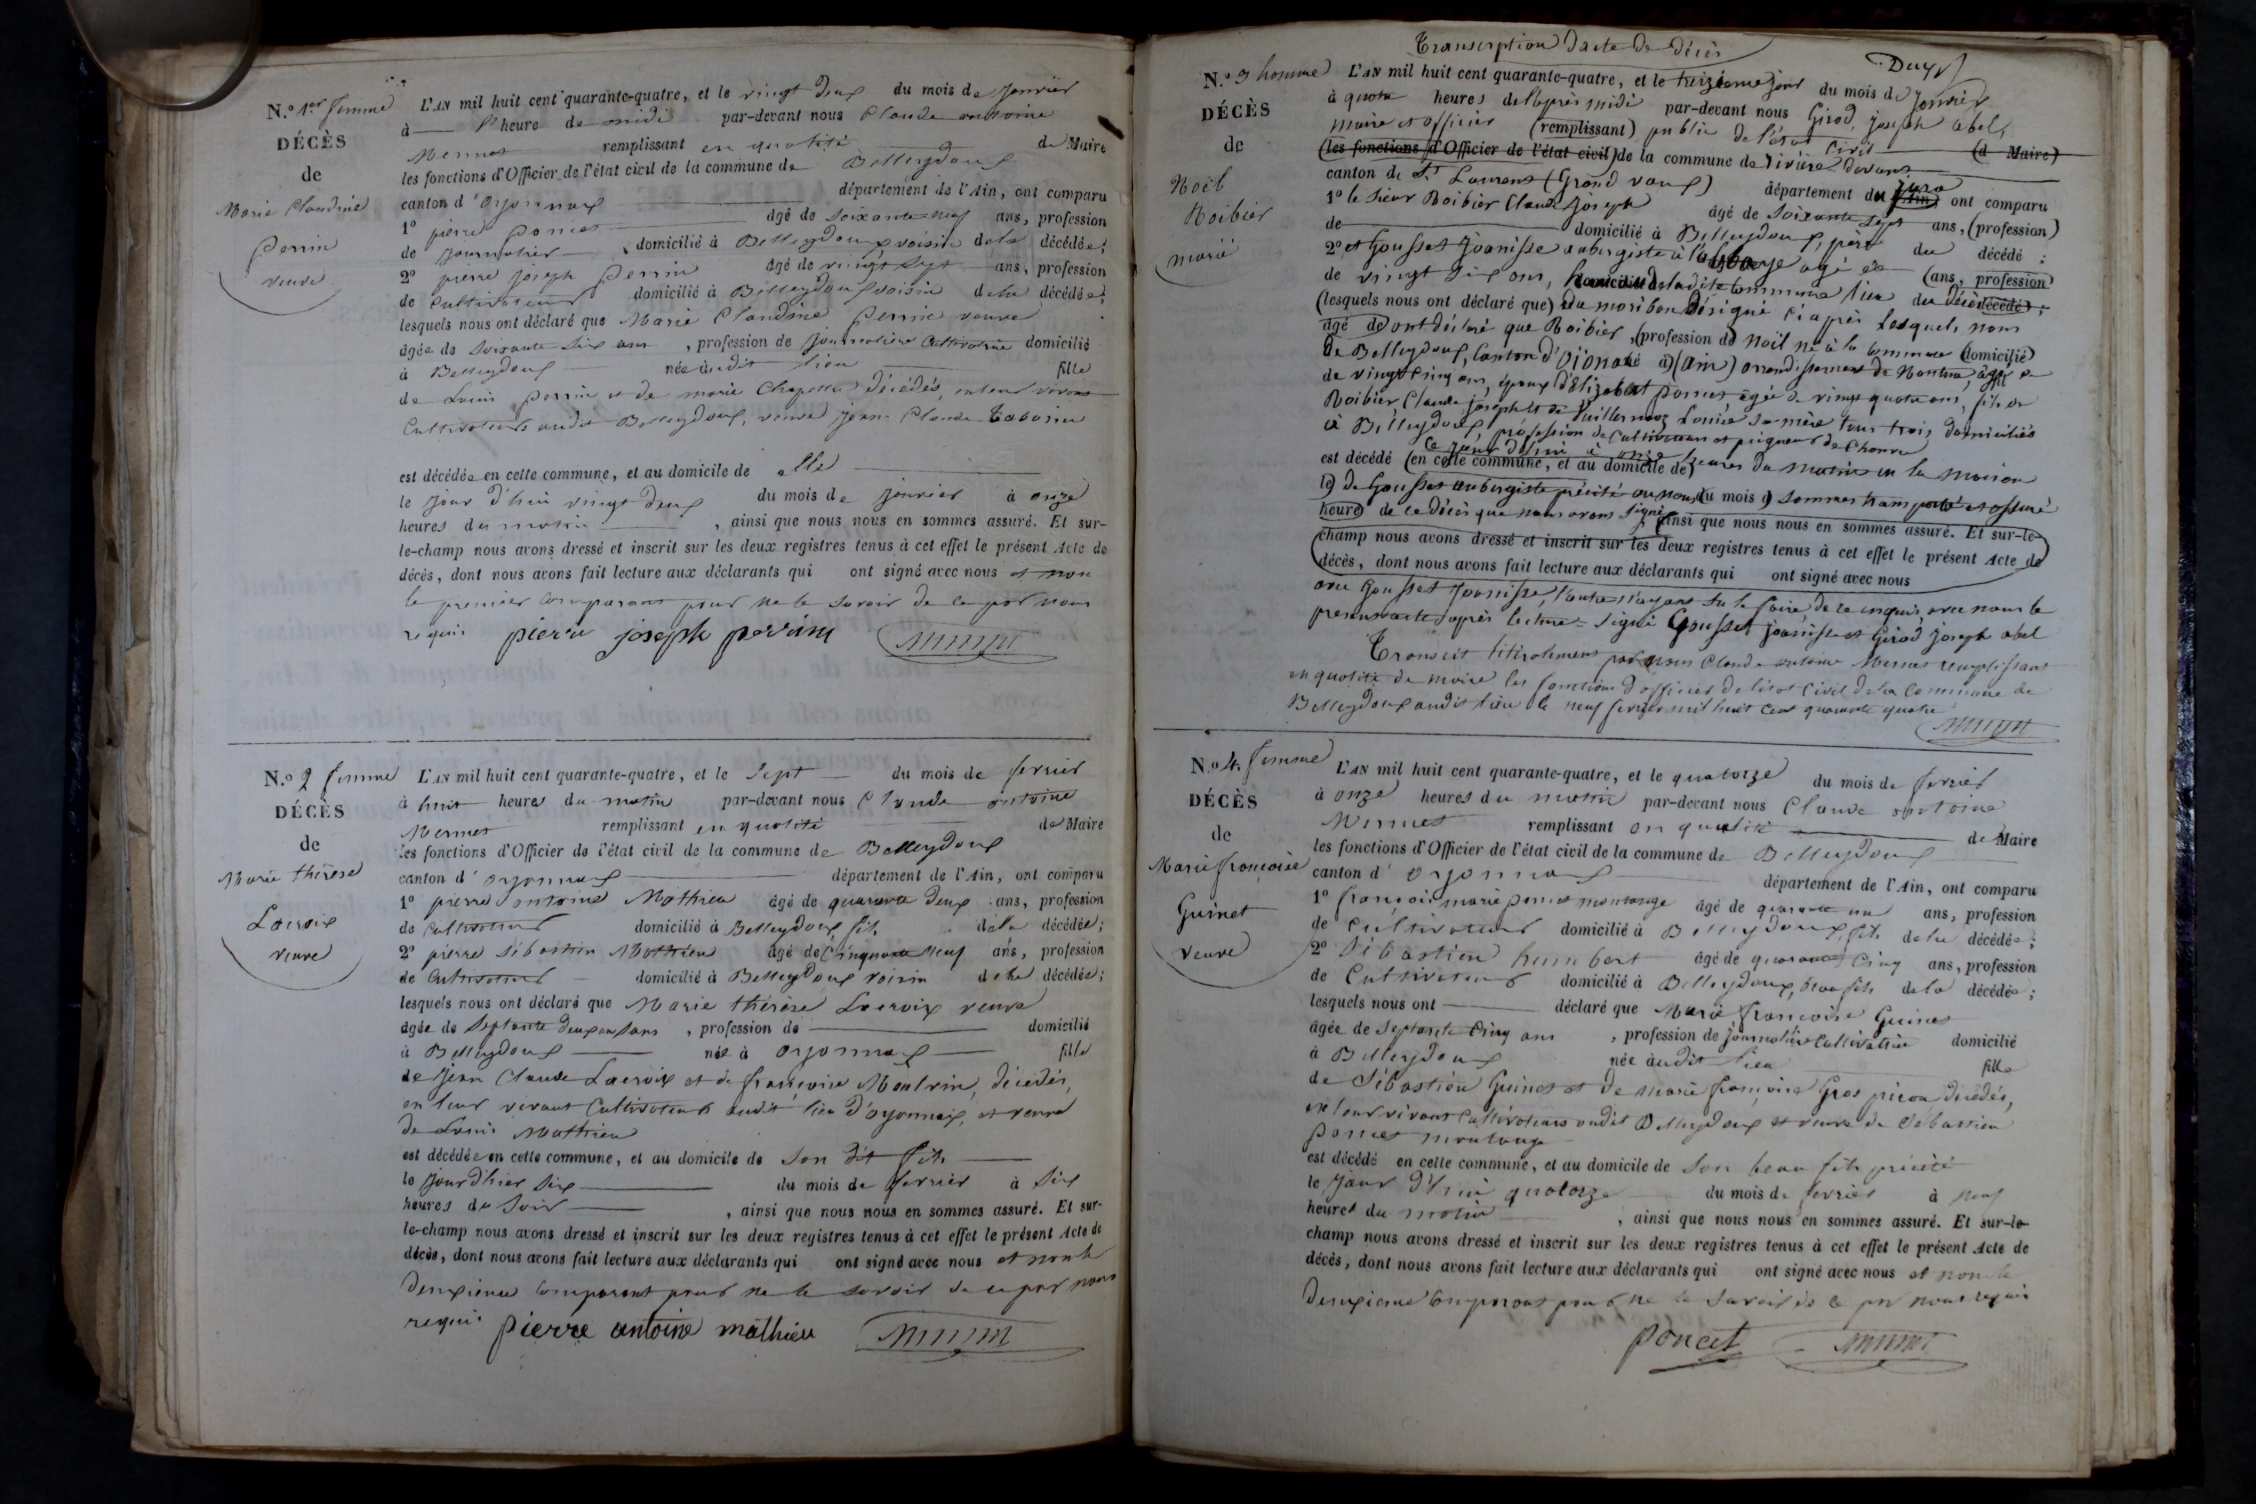 N.º 1er femme
DÉCÈS
de
Marie Claudine
Perrin
veuve
L'AN mil huit cent quarante-quatre, et le vingt deux du mois de Janvier
à l'heure de midi par-devant nous Claude antoine
Mermet remplissant en qualité de Maire
les fonctions d'Officier de l'état civil de la commune de Belleydoux
canton d'oyonnax département de l'Ain, ont comparu
1º pierre poncet âgé de soixante neuf ans, profession
de journalier domicilié à Belleydoux voisin de la décédée;
2º pierre joseph perrin âgé de vingt sept ans, profession
de cultivateur domicilié à Belleydoux voisin de la décédée;
lesquels nous ont déclaré que Marie Claudine Perrin veuve
âgée de soixante six ans, profession de journalière cultivatrice domicilié
à Belleydoux née audit lieu fille
de Louis perrin et de marie Chapelle décédés, en leur vivant
cultivateurs audit Belleydoux, veuve jean Claude
est décédée en cette commune, et au domicile de elle
le jour d'hui vingt deux du mois de janvier à onze
heures du matin, ainsi que nous nous en sommes assuré. Et sur-
le-champ nous avons dressé et inscrit sur les deux registres tenus à cet effet le présent Acte de
décès, dont nous avons fait lecture aux déclarants qui ont signé avec nous et non
le premier comparant pour ne le savoir de ce par nous
requis pierre joseph perrin Mermet
N.º 2 femme
DÉCÈS
de
Marie thérèse
Lacroix
veuve
L'AN mil huit cent quarante-quatre, et le sept du mois de fevrier
à huit heures du matin par-devant nous Claude antoine
Mermet remplissant en qualité de Maire
les fonctions d'Officier de l'état civil de la commune de Belleydoux
canton d'oyonnax département de l'Ain, ont comparu
1º pierre antoine Mathieu âgé de quarante deux ans, profession
de cultivateur domicilié à Belleydoux fils de la décédée;
2º pierre Sébastien Mathieu âgé de cinquante neuf ans, profession
de cultivateur domicilié à Belleydoux voisin de la décédée;
lesquels nous ont déclaré que Marie thérèse Lacroix veuve
âgée de septante deux ans, profession de domicilié
à Belleydoux née à oyonnax fille
de jean Claude Lacroix et de françoise décédés,
en leur vivant cultivateurs audit lieu d'oyonnax, et veuve
de Louis Mathieu
est décédée en cette commune, et au domicile de son dit fils
le jour d'hier six du mois de fevrier à six
heures du soir, ainsi que nous nous en sommes assuré. Et sur-
le-champ nous avons dressé et inscrit sur les deux registres tenus à cet effet le présent Acte de
décès, dont nous avons fait lecture aux déclarants qui ont signé avec nous et non le
deuxième comparant pour ne le savoir de ce par nous
requis pierre antoine mathieu Mermet
Transcription d'acte de décès
N.º 3 homme
DÉCÈS
de
Noël
Roibier
marié
L'AN mil huit cent quarante-quatre, et le treizième jour du mois de Janvier
à quatre heures de l'après midi par-devant nous Girod, joseph abel,
maire et officier (remplissant) public de l'état civil (d Maire)
(les fonctions d'Officier de l'état civil) de la commune de rivière devant
canton de St Laurent (Grand vaux) département du jura (Ain) ont comparu
1º le sieur Roibier Claude joseph âgé de soixante sept ans, (profession)
de domicilié à Belleydoux, père du décédé:
2º et Gousset joanisse aubergiste à l'abbaye agé de (ans, profession
de vingt six ans, domicilié de ladite commune lieu du décès (décédé);
(lesquels nous ont déclaré que) du moribond désigné ci après lesquels nous
(âgé de) ont déclaré que Roibier, (profession de) noël né à la commune (domicilié)
de Belleydoux, canton d'oionax (né à) (ain) arrondissement de Nantua, âgé
de vingt cinq ans, époux d'Elizabet poncet agée de vingt quatre ans, fils de
Roibier Claude joseph et de Vuillermoz Louise sa mère tous trois domiciliés
à Belleydoux, profession de cultivateur et peigneur de chanvre
est décédé ce jour d'hui à onze heures du matin en la maison
(en cette commune, et au domicile de)
le) de Gousset aubergiste précité ou nous (du mois d) sommes transporté et assuré
heure) de ce décès que nous avons signé, (ainsi que nous nous en sommes assuré. Et sur-le-
champ nous avons dressé et inscrit sur les deux registres tenus à cet effet le présent Acte de
décès, dont nous avons fait lecture aux déclarants qui ont signé avec nous
avec Gousset joanisse, l'autre n'ayant su le faire de ce enquis, avec nous le
présent acte après lecture = signé Gousset joanisse et Girod joseph abel
Transcrit littéralement par nous Claude antoine Mermet remplissant
en qualité de maire les fonctions d'officier de l'état civil de la Commune de
Belleydoux audit lieu le neuf fevrier mil huit cent quarante quatre
Mermet
N.º 4 femme
DÉCÈS
de
Marie françoise
Guinet
veuve
L'AN mil huit cent quarante-quatre, et le quatorze du mois de fevrier
à onze heures du matin par-devant nous Claude antoine
Mermet remplissant en qualité de Maire
les fonctions d'Officier de l'état civil de la commune de Belleydoux
canton d'oyonnax département de l'Ain, ont comparu
1º françois marie poncet montange âgé de quarante un ans, profession
de cultivateur domicilié à Belleydoux, fils de la décédée;
2º Sébastien humbert âgé de quarante cinq ans, profession
de cultivateur domicilié à Belleydoux, beau fils de la décédée;
lesquels nous ont déclaré que Marie françoise Guinet
âgée de septante cinq ans, profession de journalière cultivatrice domicilié
à Belleydoux née audit lieu fille
de Sébastien Guinet et de marie françoise Gros décédés,
en leur vivant cultivateurs audit Belleydoux et veuve de Sébastien
poncet montange
est décédé en cette commune, et au domicile de son beau fils précité
le jour d'hui quatorze du mois de fevrier à neuf
heures du matin, ainsi que nous nous en sommes assuré. Et sur-le-
champ nous avons dressé et inscrit sur les deux registres tenus à cet effet le présent Acte de
décès, dont nous avons fait lecture aux déclarants qui ont signé avec nous et non le
deuxième comparant pour ne le savoir de ce par nous requis
poncet Mermet